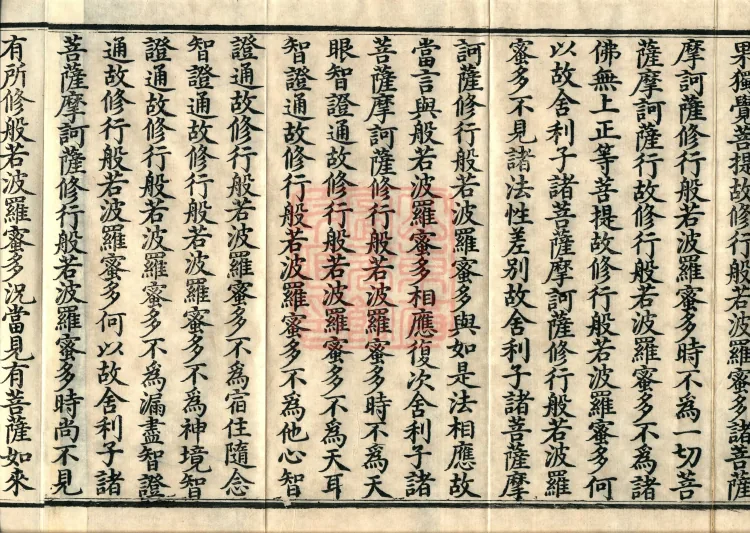 果獨覺菩提故修行般若波羅蜜多諸菩薩
摩訶薩修行般若波羅蜜多時不為一切菩
薩摩訶薩行故修行般若波羅蜜多不為諸
佛無上正等菩提故修行般若波羅蜜多何
以故舍利子諸菩薩摩訶薩修行般若波羅
蜜多不見諸法性差別故舍利子諸菩薩摩
訶薩修行般若波羅蜜多與如是法相應故
當言與般若波羅蜜多相應復次舍利子諸
菩薩摩訶薩修行般若波羅蜜多時不為天
眼智證通故修行般若波羅蜜多不為天耳
智證通故修行般若波羅蜜多不為他心智
證通故修行般若波羅蜜多不為宿住隨念
智證通故修行般若波羅蜜多不為神境智
證通故修行般若波羅蜜多不為漏盡智證
通故修行般若波羅蜜多何以故舍利子諸
菩薩摩訶薩修行般若波羅蜜多時尚不見
有所修般若波羅蜜多況當見有菩薩如來